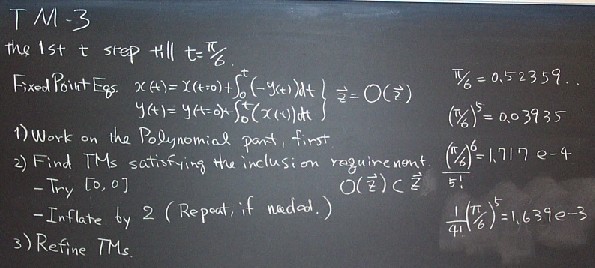 TM-3
the 1st t step till t=π/6.
Fixed Point Eqs. x(t)=x(t=0)+∫₀ᵗ(-y(t))dt } z⃗=O(z⃗)
y(t)=y(t=0)+∫₀ᵗ(x(t))dt
1) Work on the Polynomial part, first.
2) Find TMs satisfying the inclusion requirement.
- Try [0,0] O(z⃗)⊂z⃗
- Inflate by 2 (Repeat, if needed.)
3) Refine TMs.
π/6=0.52359..
(π/6)⁵=0.03935
(π/6)⁶/5!=1.717e-4
1/4!(π/6)⁵=1.639e-3